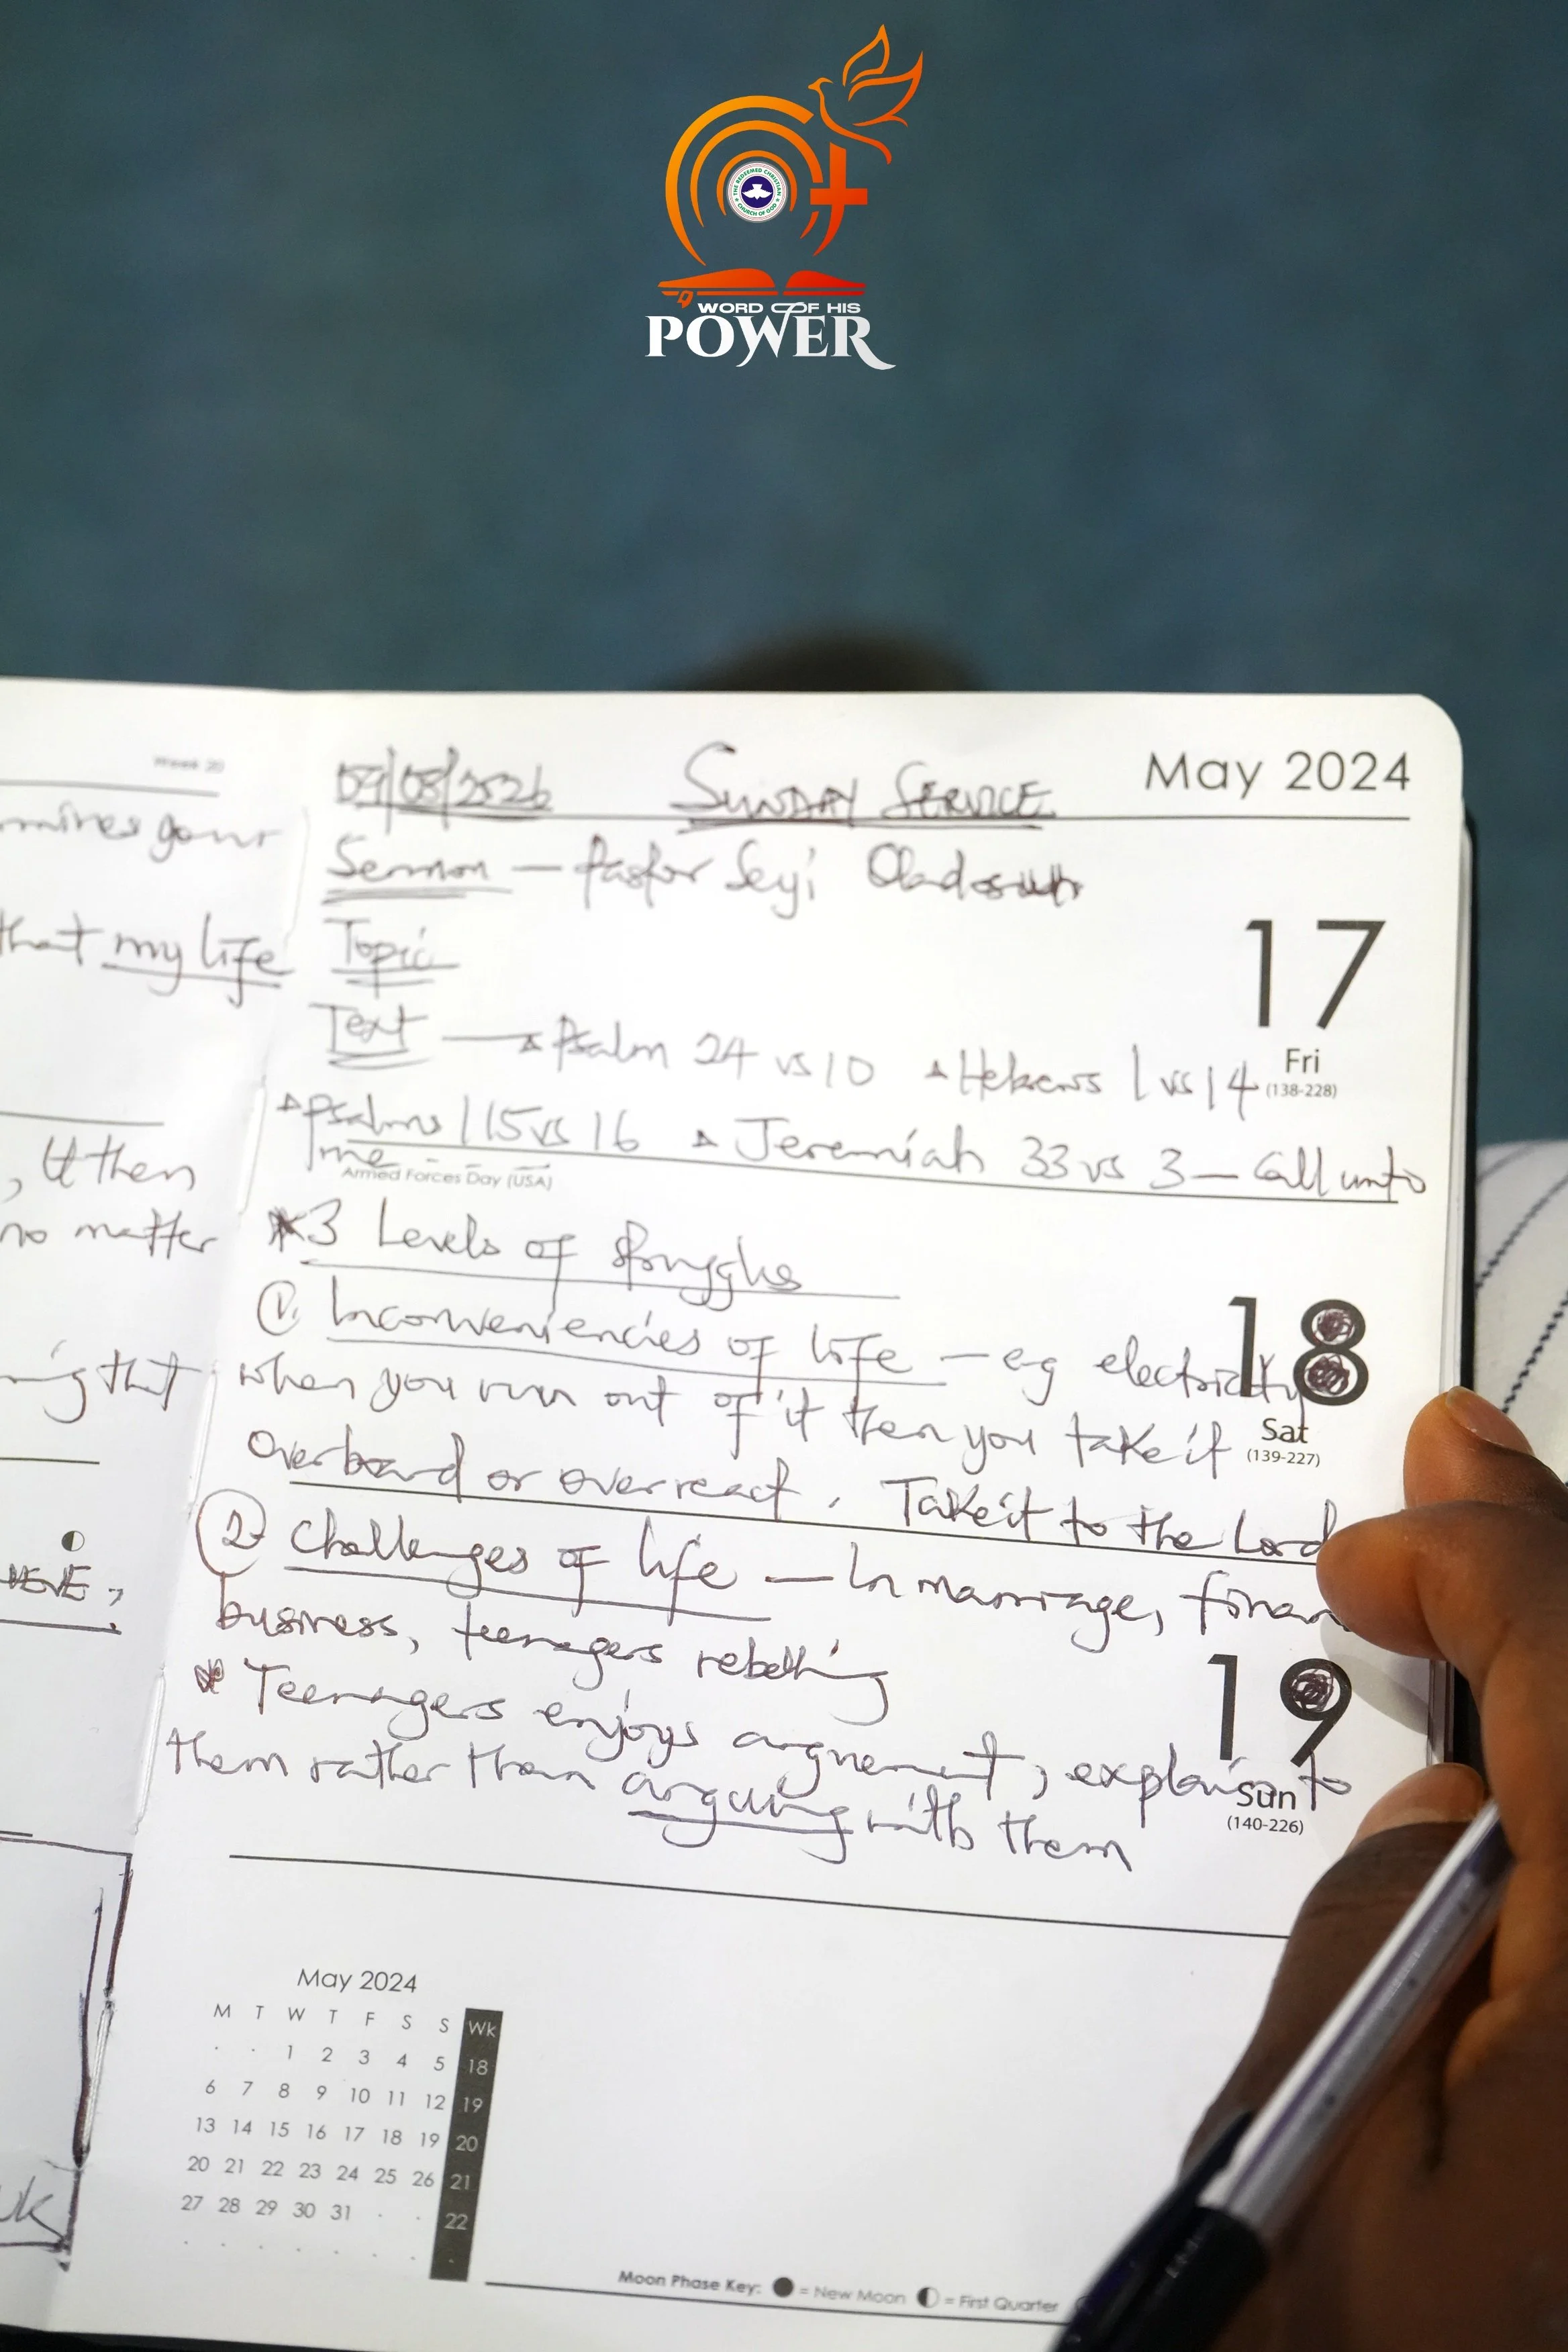 THE REDEEMED CHRISTIAN CHURCH OF GOD
WORD OF HIS
POWER
Week 20
that my life
, & then
no matter
ing that
May 2024
09/08/2026 SUNDAY SERVICE
Sermon — Pastor Seyi
Topic
Text → Psalm 24 vs 10 Hebrews 1 vs 14
17
Fri
(138-228)
Psalms 115 vs 16 Jeremiah 33 vs 3 — Call unto
me
Armed Forces Day (USA)
*3 Levels of Struggles
① Inconveniencies of life — eg electricity
18
Sat
(139-227)
when you run out of it then you take it
overboard or overreact. Take it to the Lord
② Challenges of life — In marriage, finan
business, teenagers rebelling
19
Sun
(140-226)
* Teenagers enjoys arguement, explain to
them rather than arguing with them
May 2024
M T W T F S S Wk
· · 1 2 3 4 5 18
6 7 8 9 10 11 12 19
13 14 15 16 17 18 19 20
20 21 22 23 24 25 26 21
27 28 29 30 31 · · 22
Moon Phase Key: = New Moon = First Quarter